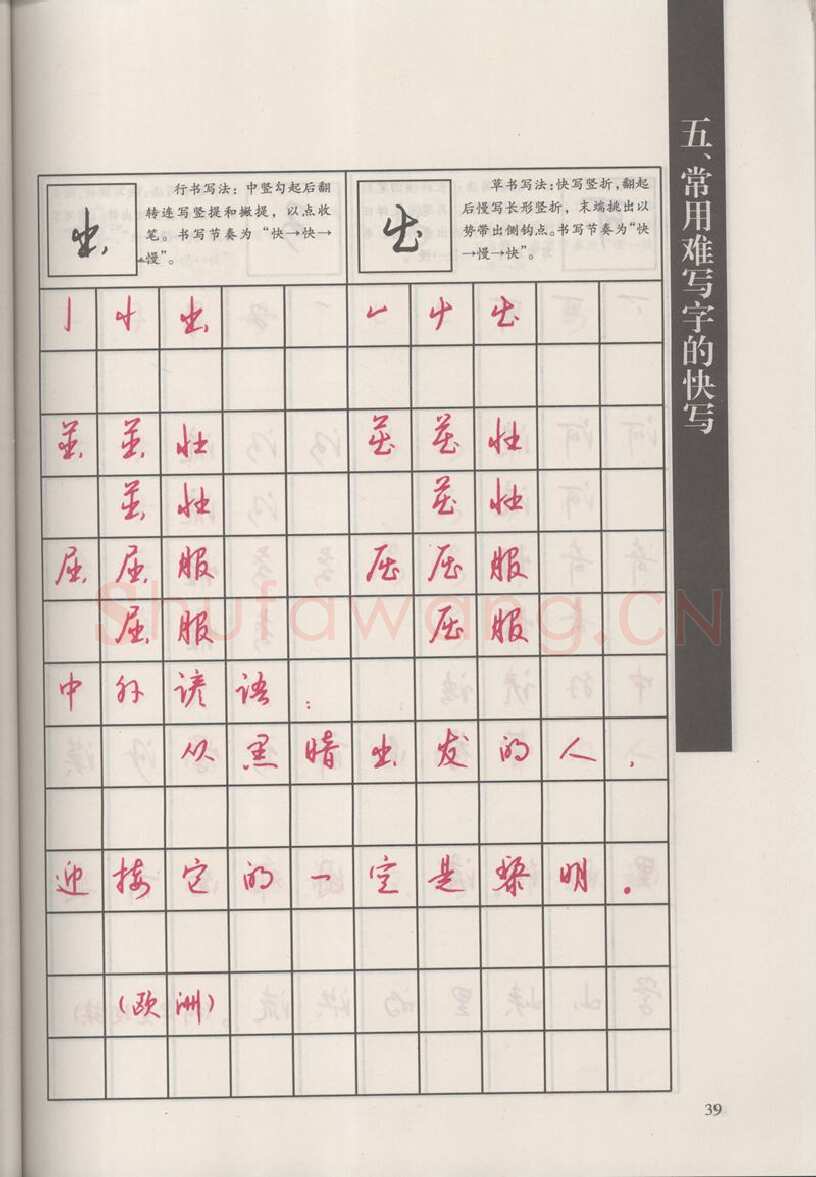 五、常用难写字的快写
出
行书写法：中竖勾起后翻
转连写竖提和撇提，以点收
笔。书写节奏为“快→快→
慢”。
出
草书写法：快写竖折，翻起
后慢写长形竖折，末端挑出以
势带出侧钩点。书写节奏为“快
→慢→快”。
出 出
茁 茁 壮 茁 茁 壮
茁 壮 茁 壮
屈 屈 服 屈 屈 服
屈 服 屈 服
Shufawang.CN
中 外 谚 语 ：
从 黑 暗 出 发 的 人 ，
迎 接 它 的 一 定 是 黎 明 。
（欧 洲）
39